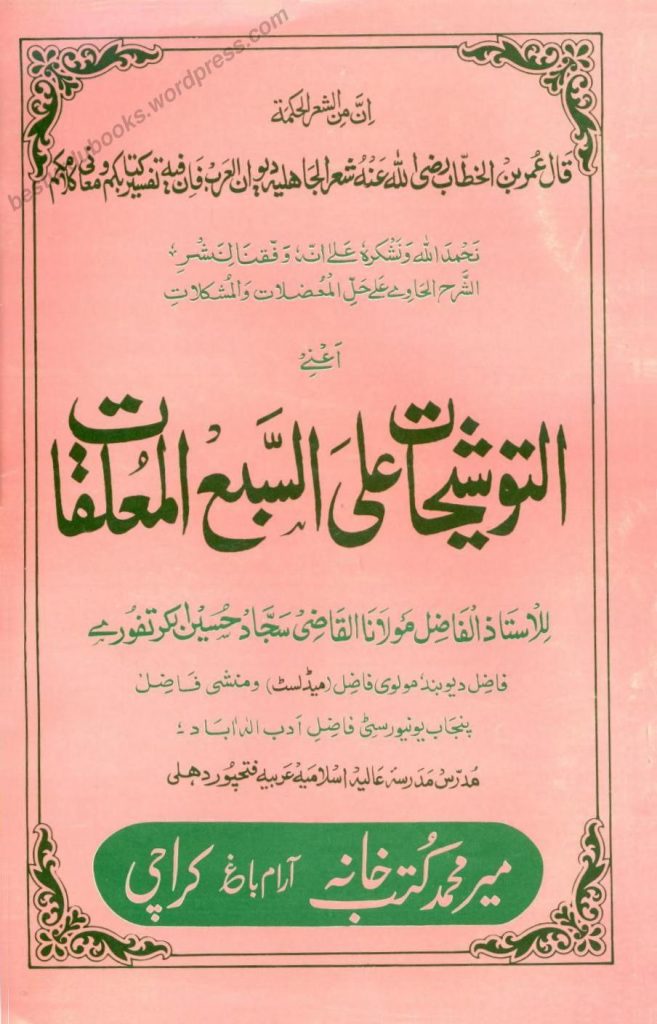 besturdubooks.wordpress.com
اِنَّ مِنَ الشعر الحكمة
قَالَ عُمر بن الخطّاب رضی اللهُ عَنْهُ شعر الجَاهلیه دیوان العرب فَاِن فیه تفسیر کتابکم ومعانی کلامکم
نَحْمَدُ اللهَ وَنَشْکُرُهٗ عَلٰے اَنَّهٗ وَفَّقَنَا لِنَشْرِ
الشَّرح الحَاوِے عَلٰے حَلِّ المُعْضِلَات وَالمُشْکِلَاتِ
اَعْنِے
التوشیحات علَی السَّبع المُعلقات
لِلْاُستاذ الفَاضِل مَولَانَا القَاضِی سَجَّاد حُسَین الکرتفُورے
فاضِل دیوبند مولوی فاضِل (میڈلسٹ) ومنشی فاضِل
پنجاب یونیورسٹی فاضِلِ اَدَب الٰه اٰباد
مُدرّس مَدرسَۃ عَالیہ اسلامیہ عَربیه فتحپور دهلی
میر محمد کُتب خانہ آرام باغ کراچی